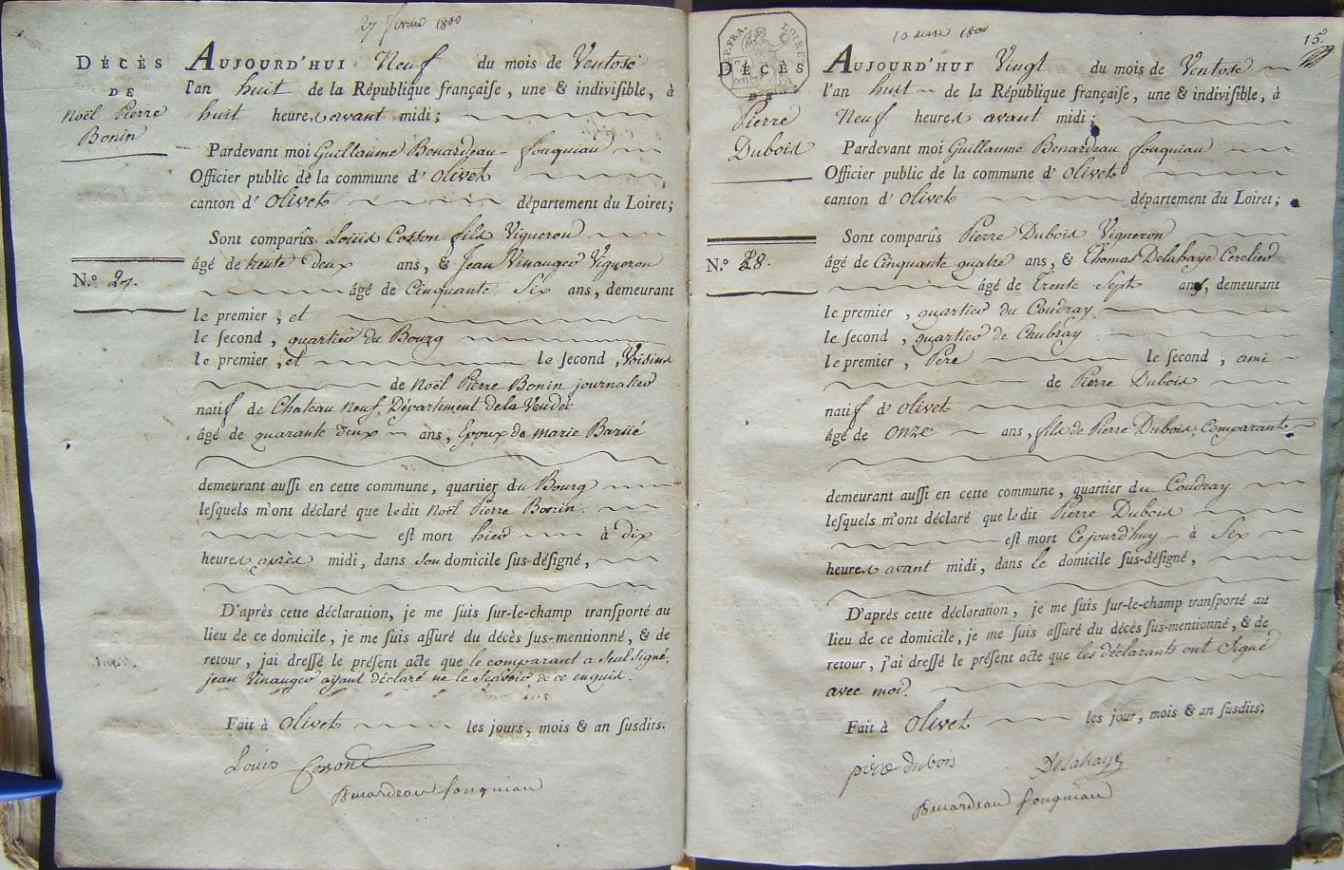 27 février 1800
DÉCÈS
DE
Noël Pierre
Bonin
N.º 27.
AUJOURD'HUI Neuf du mois de Ventose
l'an huit de la République françaiſe, une & indiviſible, à
huit heures avant midi;
Pardevant moi Guillaume Benardeau fouquiau
Officier public de la commune d' Olivet
canton d' Olivet département du Loiret;
Sont comparûs Louis Cosson fils Vigneron
âgé de trente deux ans, & Jean Vinauger Vigneron
âgé de Cinquante Six ans, demeurant
le premier, et
le ſecond, quartier du Bourg
le premier, et le ſecond, Voisins
de Noël Pierre Bonin journalier
natif de Chateau neuf, Département de la Vendée
âgé de quarante deux ans, Epoux de marie Barüé
demeurant auſſi en cette commune, quartier du Bourg
leſquels m'ont déclaré que ledit Noël Pierre Bonin
eſt mort hier à dix
heures après midi, dans son domicile ſus-déſigné,
D'après cette déclaration, je me ſuis ſur-le-champ tranſporté au
lieu de ce domicile, je me ſuis aſſuré du décès ſus-mentionné, & de
retour, j'ai dreſſé le préſent acte que le comparant a seul signé.
jean Vinauger ayant déclaré ne le Scavoir de ce enquis.
Fait à Olivet les jours, mois & an ſusdits.
Louis Cosson
Benardeau fouquiau
RÉP. FRA. LOIRET
10 mars 1800
15
DÉCÈS
DE
Pierre
Dubois
N.º 28.
AUJOURD'HUI Vingt du mois de Ventose
l'an huit de la République françaiſe, une & indiviſible, à
Neuf heures avant midi;
Pardevant moi Guillaume Benardeau fouquiau
Officier public de la commune d' Olivet
canton d' Olivet département du Loiret;
Sont comparûs Pierre Dubois Vigneron
âgé de Cinquante quatre ans, & Thomas Delahaye Cerclier
âgé de Trente Sept ans, demeurant
le premier, quartier du Coudray
le ſecond, quartier de Caubray
le premier, Pere le ſecond, ami
de Pierre Dubois
natif d' olivet
âgé de onze ans, fils de Pierre Dubois, Comparant
demeurant auſſi en cette commune, quartier du Coudray
leſquels m'ont déclaré que ledit Pierre Dubois
eſt mort Cejourd'huy à Six
heures avant midi, dans le domicile ſus-déſigné,
D'après cette déclaration, je me ſuis ſur-le-champ tranſporté au
lieu de ce domicile, je me ſuis aſſuré du décès ſus-mentionné, & de
retour, j'ai dreſſé le préſent acte que les déclarants ont signé
avec moi.
Fait à Olivet les jour, mois & an ſusdits;
pierre dubois Delahaye
Benardeau fouquiau